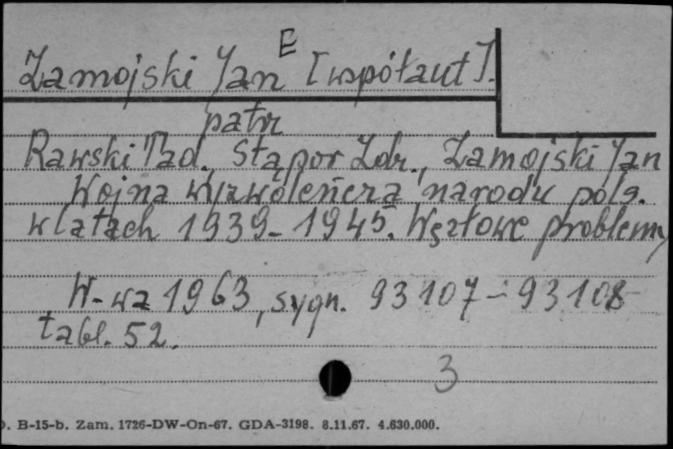 Zamojski Jan E [współaut].
patrz
Rawski Tad., Stąpor Zdz., Zamojski Jan
Wojna wyzwoleńcza narodu pols.
w latach 1939-1945. Węzłowe problemy
W-wa 1963, sygn. 93107-93108
tabl. 52.
3
B-15-b. Zam. 1726-DW-On-67. GDA-3198. 8.11.67. 4.630.000.